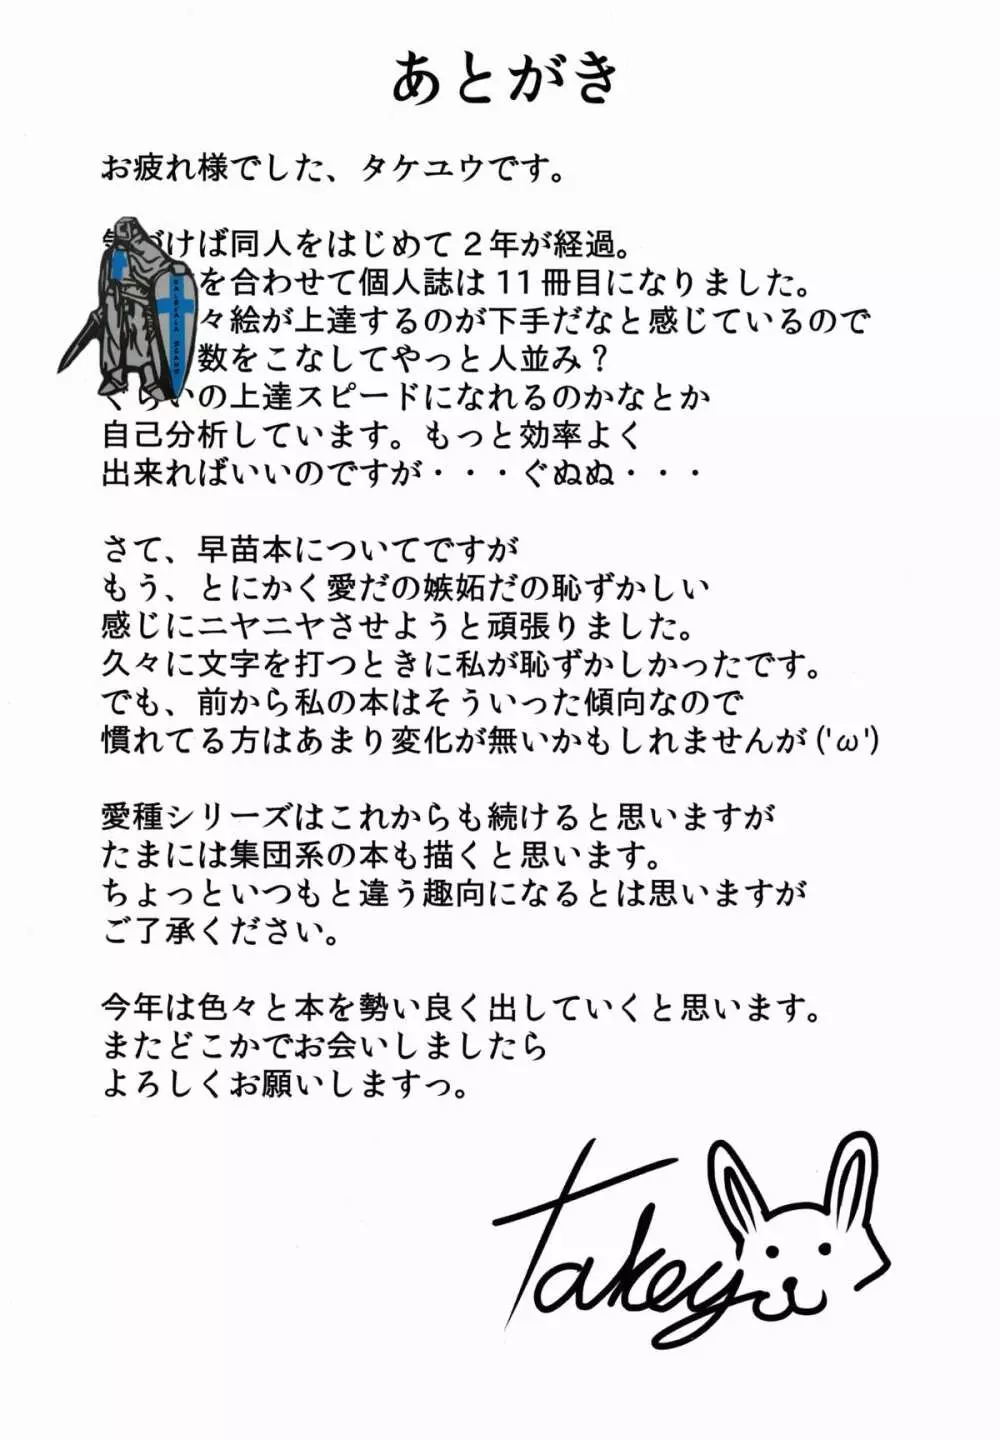 あとがき
お疲れ様でした、タケユウです。
づけば同人をはじめて2年が経過。
を合わせて個人誌は11冊目になりました。
々絵が上達するのが下手だなと感じているので
数をこなしてやっと人並み?
ぐらいの上達スピードになれるのかなとか
自己分析しています。もっと効率よく
出来ればいいのですが・・・ぐぬぬ・・・
さて、早苗本についてですが
もう、とにかく愛だの嫉妬だの恥ずかしい
感じにニヤニヤさせようと頑張りました。
久々に文字を打つときに私が恥ずかしかったです。
でも、前から私の本はそういった傾向なので
慣れてる方はあまり変化が無いかもしれませんが('ω')
愛種シリーズはこれからも続けると思いますが
たまには集団系の本も描くと思います。
ちょっといつもと違う趣向になるとは思いますが
ご了承ください。
今年は色々と本を勢い良く出していくと思います。
またどこかでお会いしましたら
よろしくお願いしますっ。
Takeyu